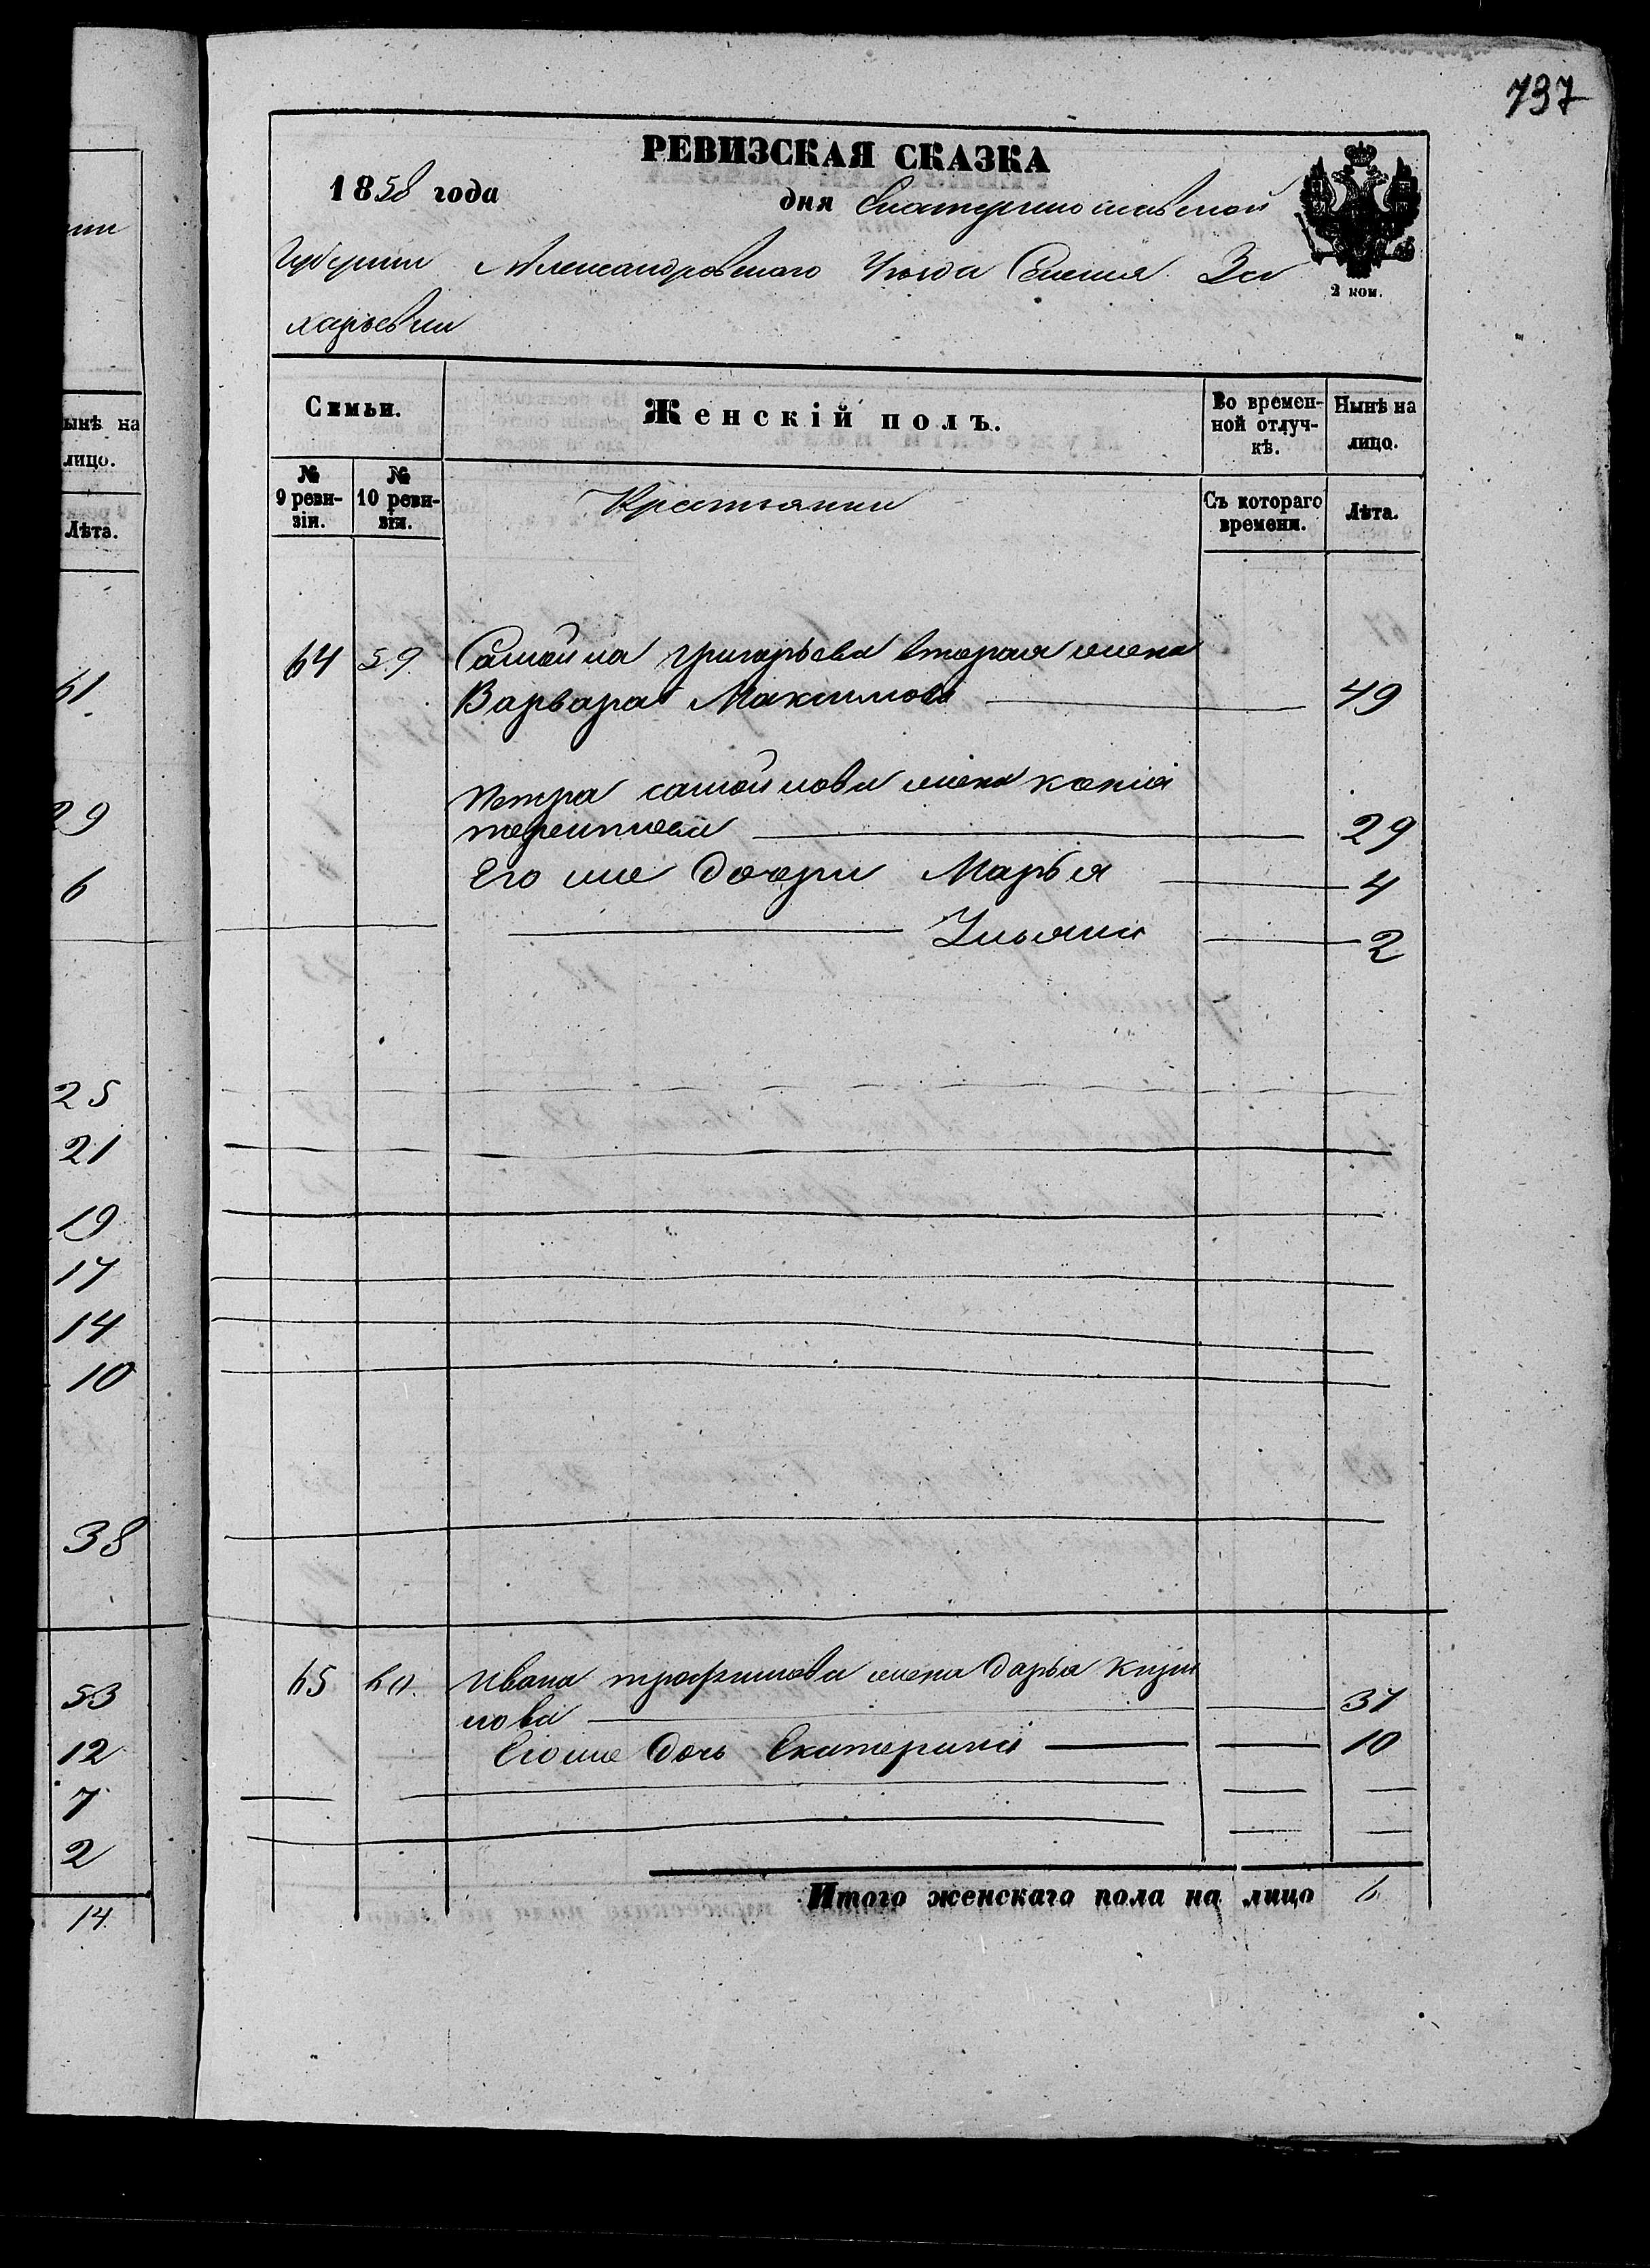 737
РЕВИЗСКАЯ СКАЗКА
1858 года дня Екатеринославской
Губернии Александровского Уѣзда Селенія За
харьевки
2 коп.
Семьи.
Женскій полъ.
Во времен-
ной отлуч-
кѣ.
Нынѣ на
лицо.
№
9 реви-
зіи.
№
10 реви-
зіи.
Крестьянки
Съ котораго
времени.
Лѣта.
64 59. Самойла Григорьева вторая жена
Варвара Максимова 49
Петра самойлова жена
29
Его же дочери Марья 4
Ульяна 2
65 60. Ивана трофимова жена дарья
нова 37
Его же дочь Екатерина 10
Итого женскаго пола на лицо 6
ынѣ на
лицо.
Лѣта.
61.
29
6
25
21
19
17
14
10
38
53
12
7
2
14